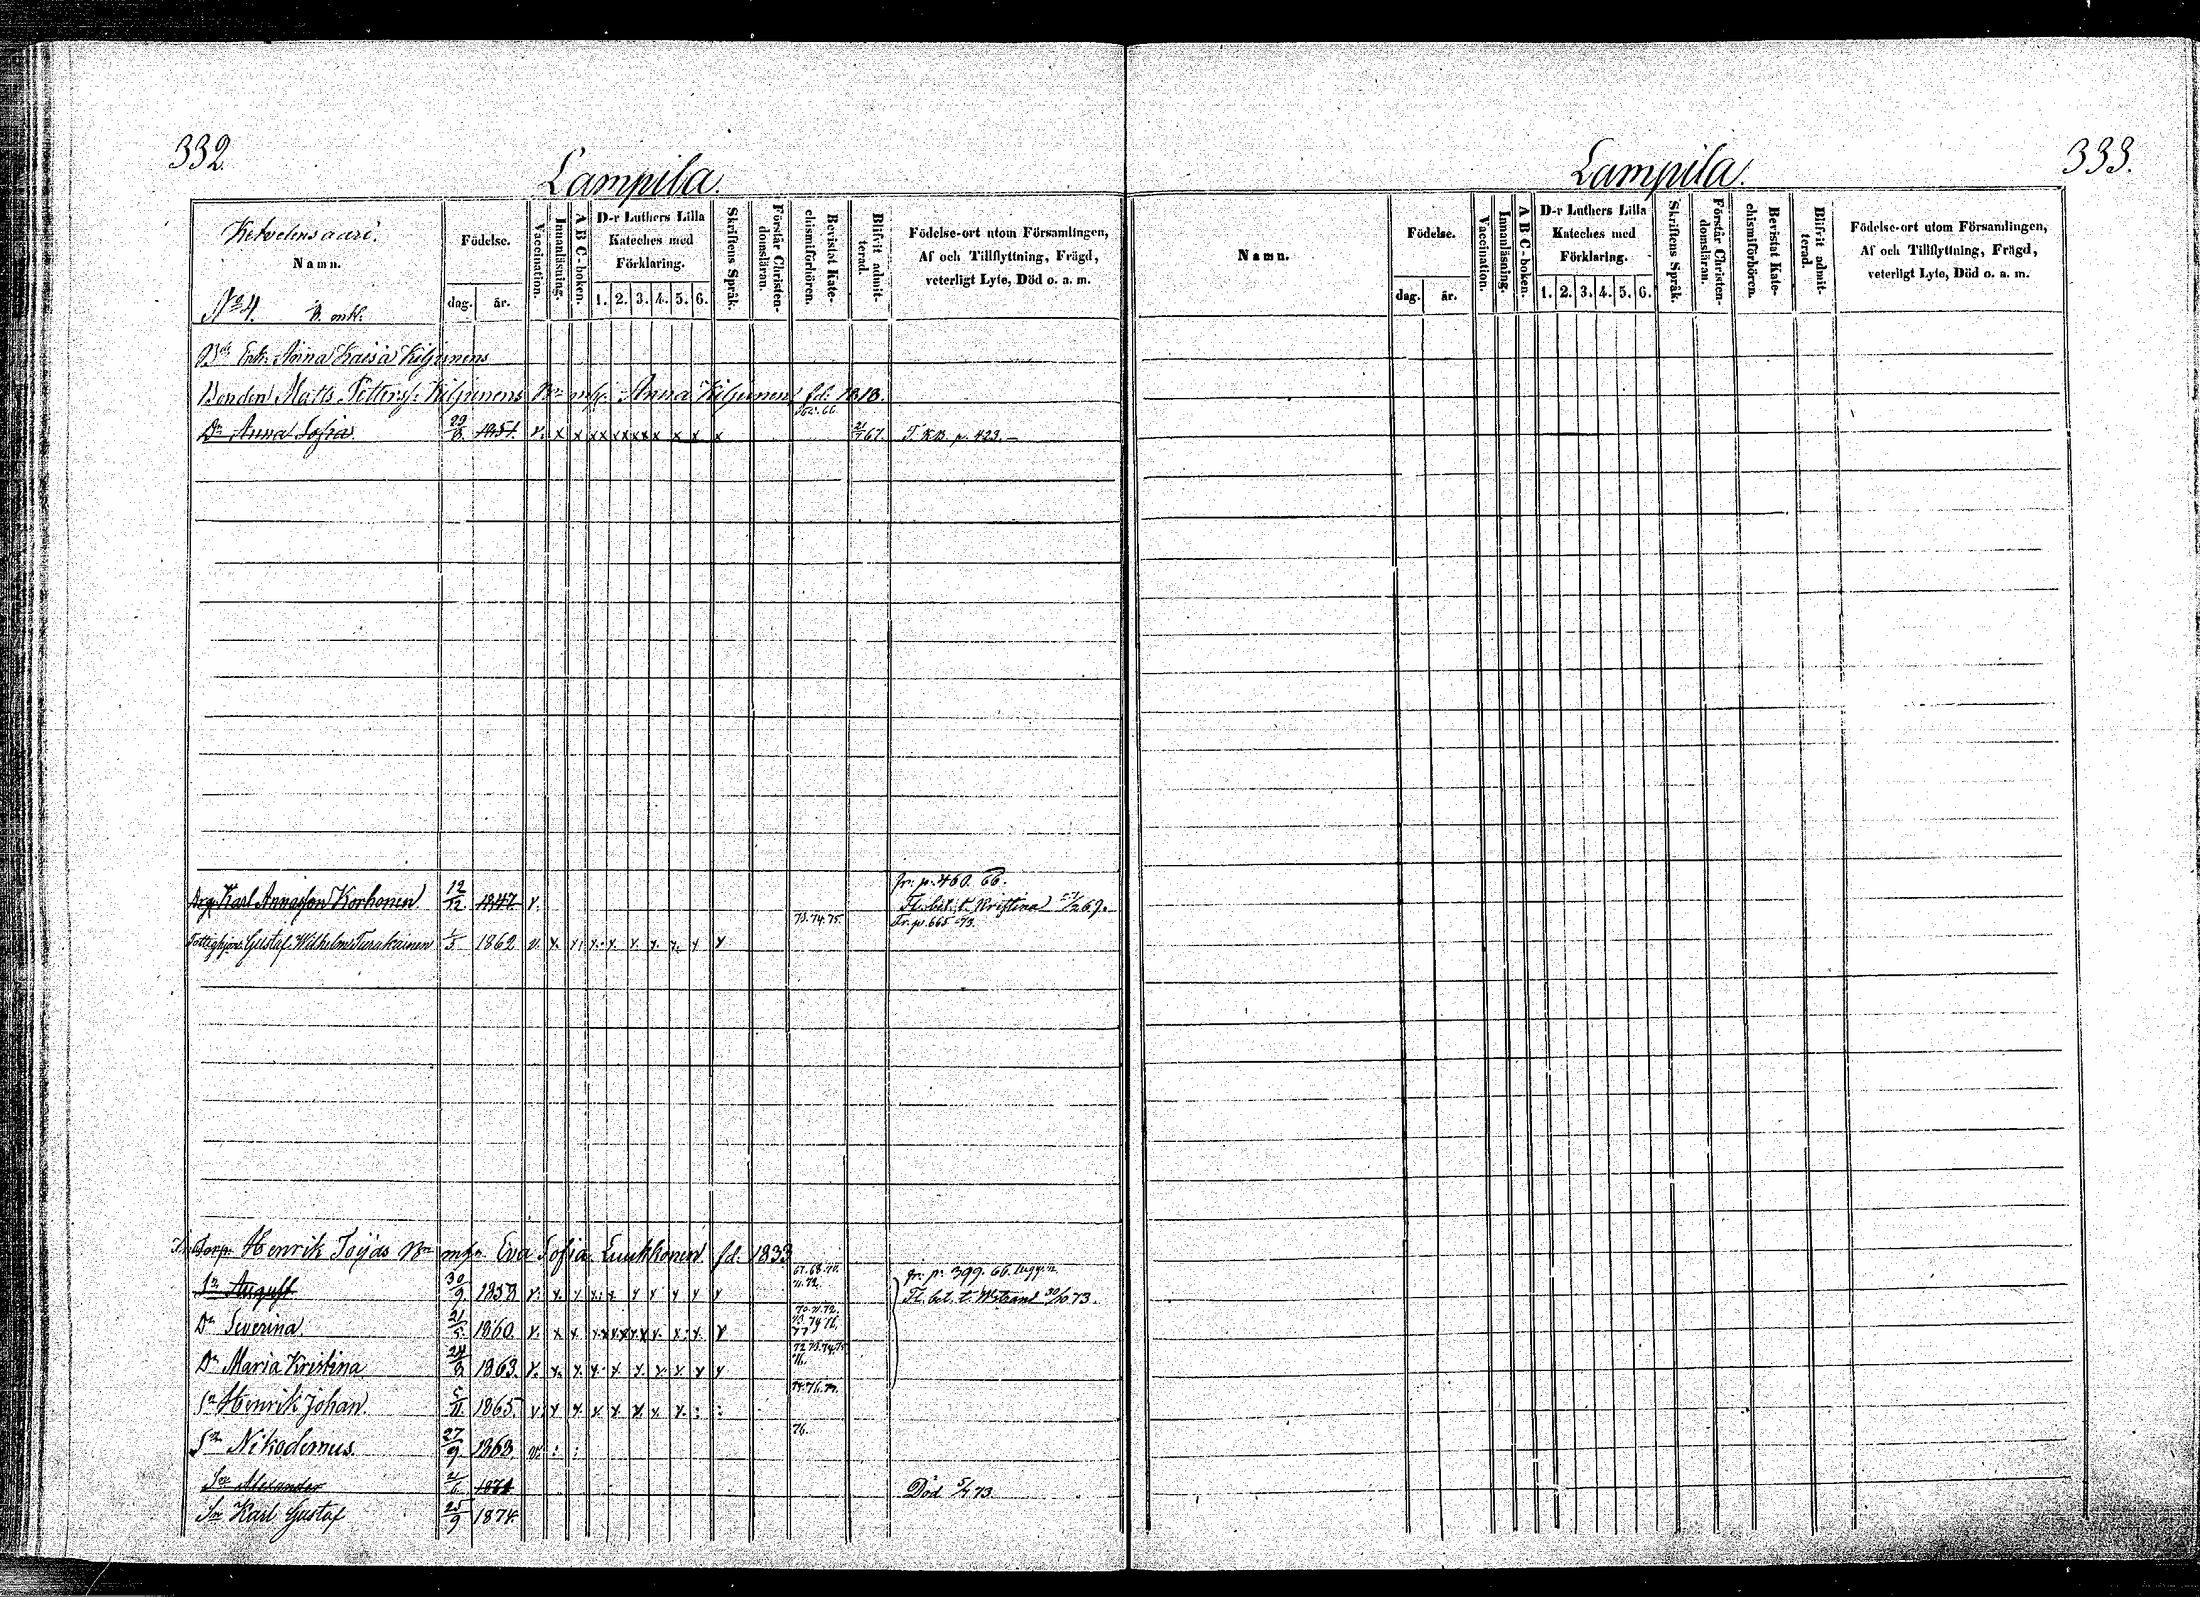 332.
Lampila.
Ketvelensaari.
Namn.
No 4.
Födelse.
dag. år.
Vaccination.
Innanläsning.
A B C-boken.
D-r Luthers Lilla
Kateches med
Förklaring.
1. 2. 3. 4. 5. 6.
Skriftens Språk.
Förstår Christen-
domsläran.
Bevistat Kate-
chismiförhören.
Blifvit admit-
terad.
Födelse-ort utom Församlingen,
Af och Tillflyttning, Frägd,
veterligt Lyte, Död o. a. m.
Anna Kaisa Kiljunens
Bonden Matts Kiljunens Anna Kiljunen fd. 1818.
65. 66.
Dr Anna Sofia 29/8 1851. v. x x x x x x x x x x x x 21/7 67. T. KB. p. 423. —
fr. p. 460. 66.
Drg Karl Annasson Korhonen 12/12 1847 v. Fl. bet. t. Kristina 67.
73. 74. 75. Fr. p. 665 73.
Fattighjon Gustaf Wilhelm Turakainen 1/5 1862 v. x. x x. x. x. x. x. x x
Torp. Henrik Töijäs Eva Sofia Luukkonen fd. 1833
67. 68. 70. fr. p. 399. 66.
71. 72.
Sn August 30/9 1858 v. x. x x. x x x x x x Fl. bet. t. Wstrand 30/10 73.
70. 71. 72.
73. 74 76.
77
Dr Severina 21/5 1860. v. x x. x x x x x x x. x. x. x
72 73. 74. 75
76.
Dr Maria Kristina 24/8 1863. v. x. x. x. x x. x. x. x x
74. 76. 77.
Sn Henrik Johan. 5/11 1865. v. x x. x. x. x. x. x. : :
76.
Sn Nikodemus. 27/9 1868. v. : :
Sn Alexander 21/6 1871 Död 5/7 73.
Sn Karl Gustaf 25/9 1874
333.
Lampila.
Namn.
Födelse.
dag. år.
Vaccination.
Innanläsning.
A B C-boken.
D-r Luthers Lilla
Kateches med
Förklaring.
1. 2. 3. 4. 5. 6.
Skriftens Språk.
Förstår Christen-
domsläran.
Bevistat Kate-
chismiförhören.
Blifvit admit-
terad.
Födelse-ort utom Församlingen,
Af och Tillflyttning, Frägd,
veterligt Lyte, Död o. a. m.